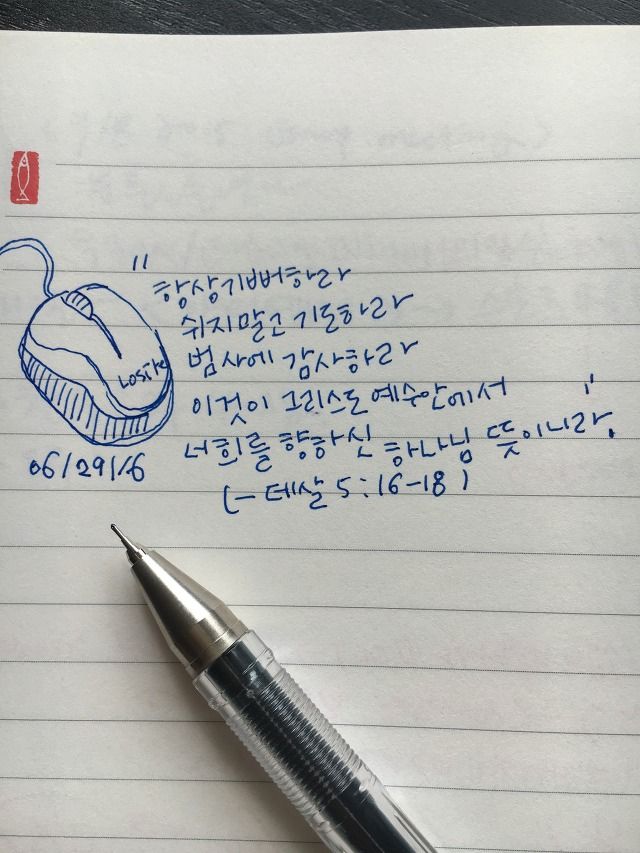 "항상기뻐하라
쉬지말고 기도하라
범사에 감사하라
이것이 그리스도 예수안에서
너희를 향하신 하나님 뜻이니라."
(-데살 5:16-18)
06/29/16